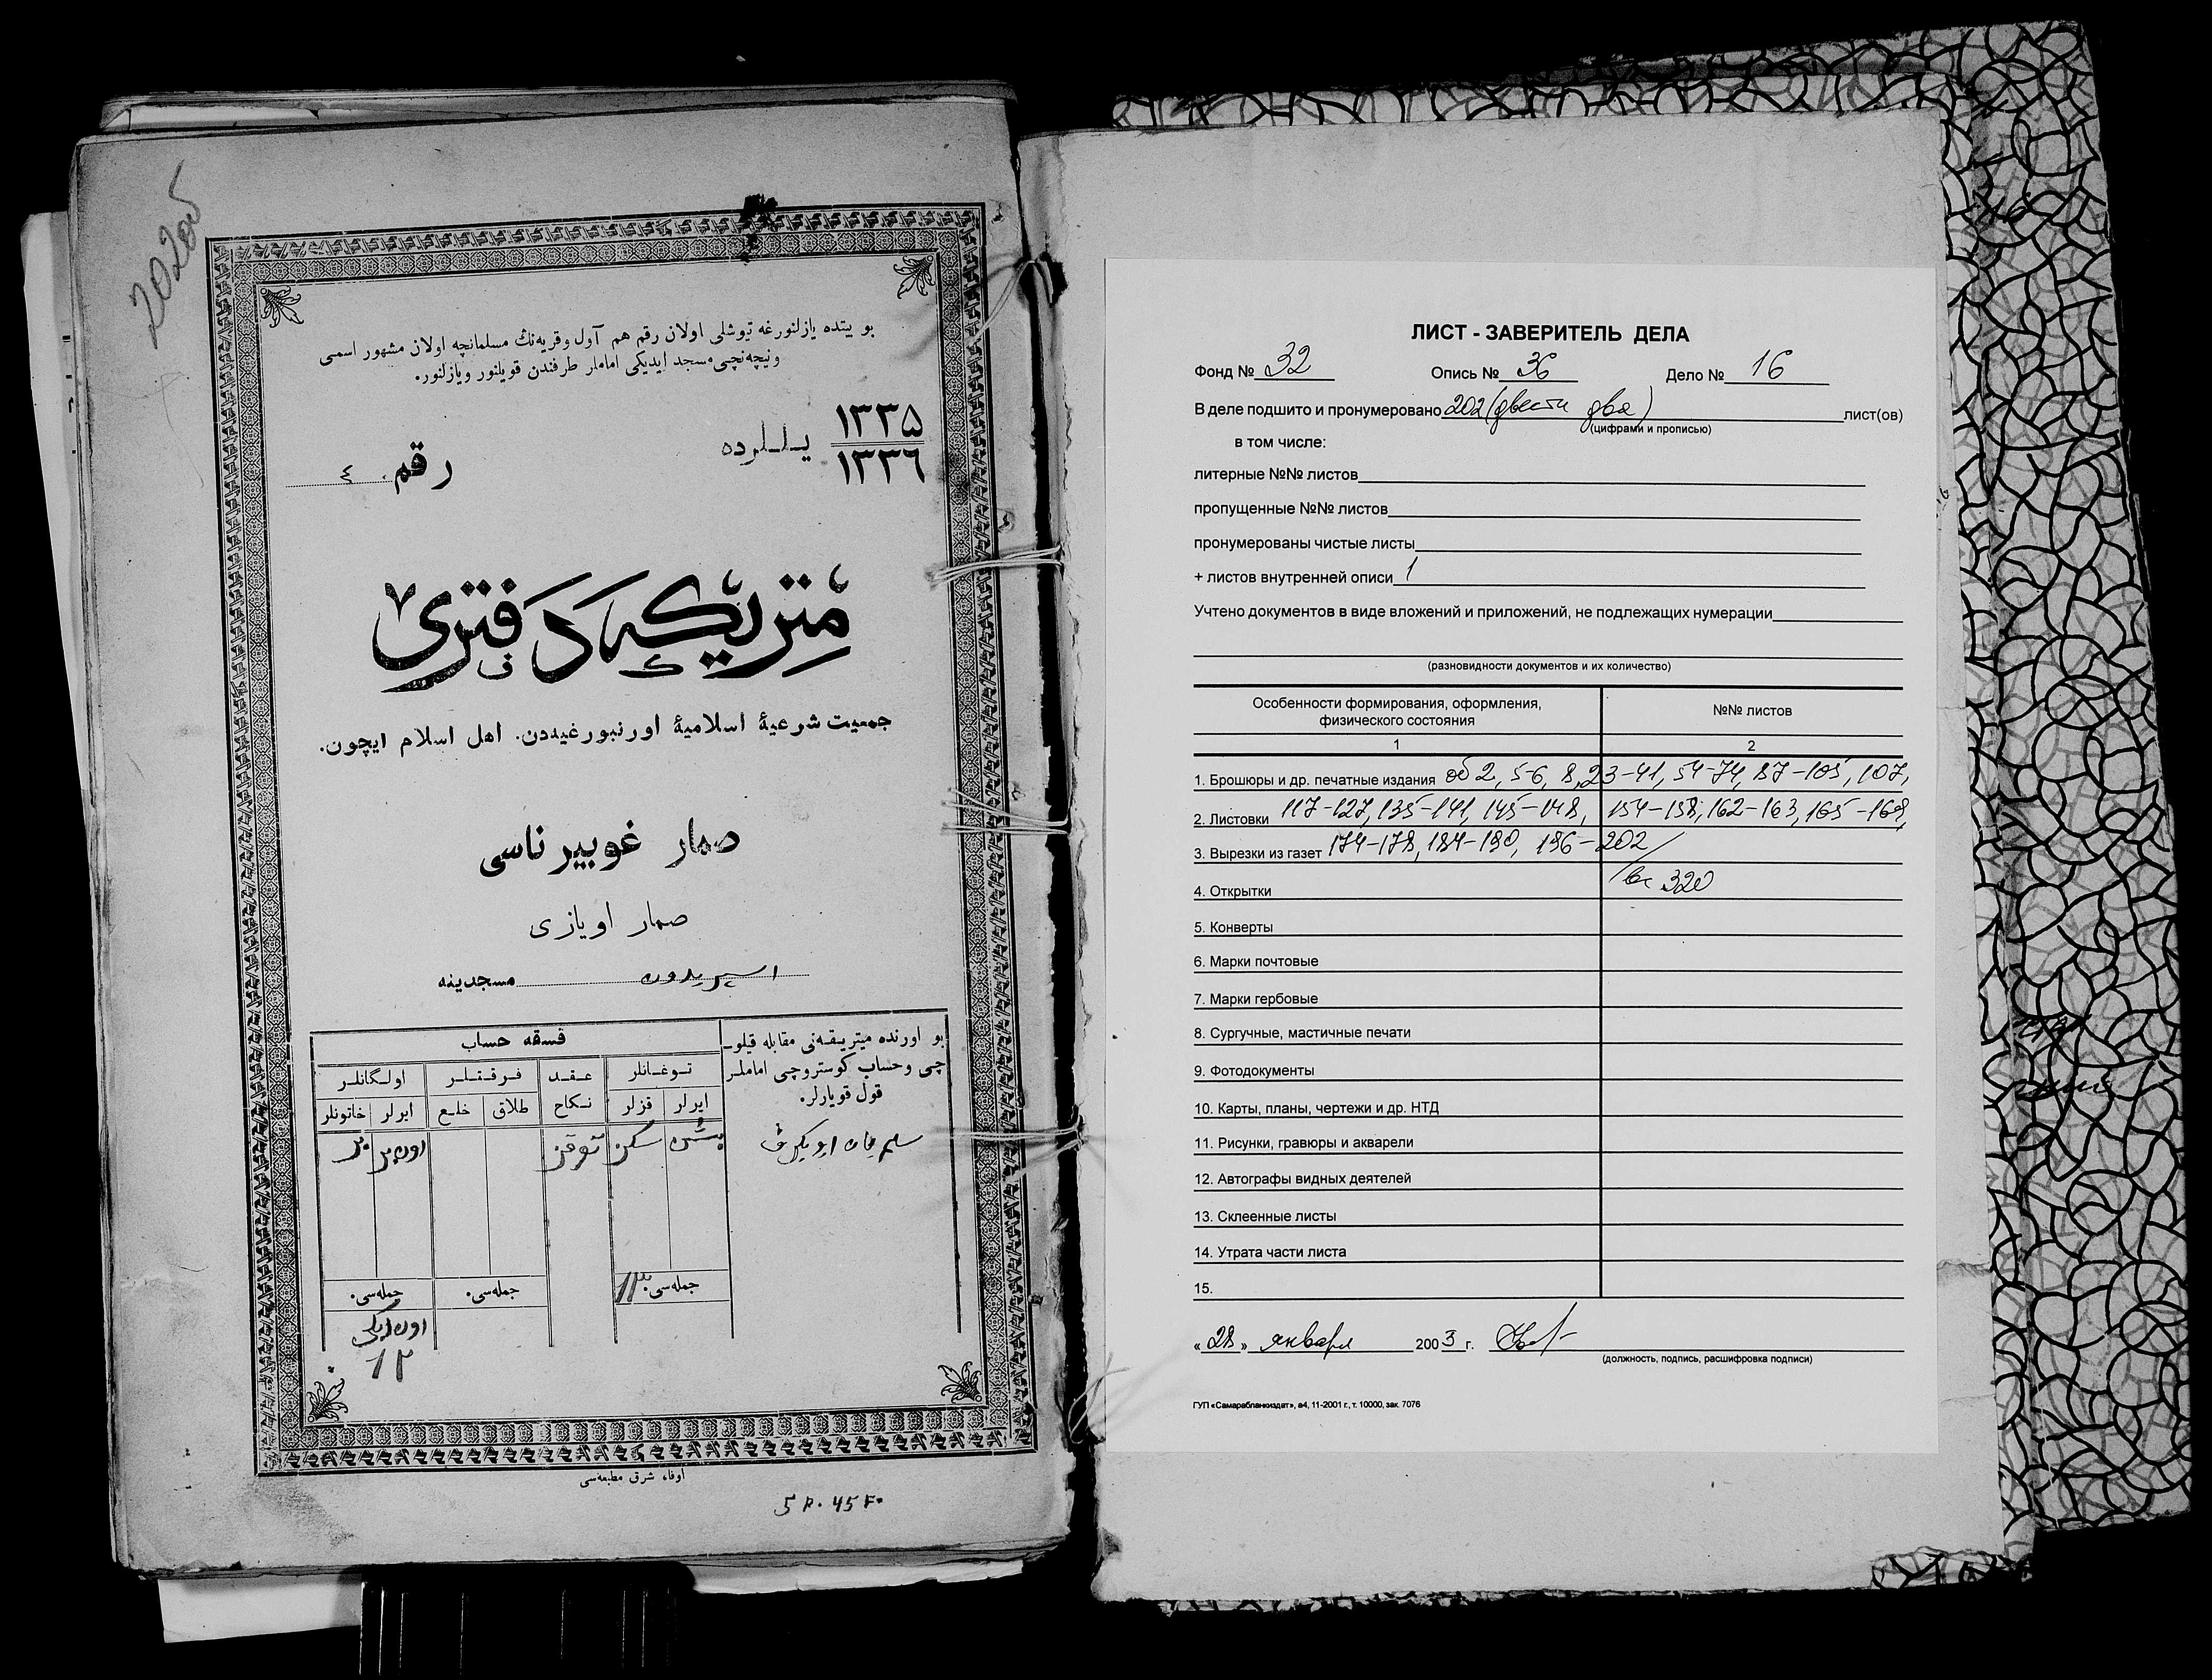 202об
بو بيتده يازلنورغه تيوشلى اولان رقم هم آول وقريه‌نڭ مسلمانچه اولان مشهور اسمى
ونيچه‌نچى مسجد ايديكى اماملر طرفندن قويلنور ويازلنور.
١٣٣٥
١٣٣٦
يـلـلـرده
رقم ٤
متريكه دفترى
جمعيت شرعيۀ اسلاميۀ اورنبورغيه‌دن. اهل اسلام ايچون.
صمار غوبيرناسى
صمار اويازى
مسجدينه
بو اورنده ميتريقه‌نى مقابله قيلو-
چى وحساب كوستروچى اماملر
قول قويارلر.
فسقه حساب
توغانلر
عـقـد
فـرقـتـلـر
اولـگانلـر
ايرلر
قزلر
نـكاح
طلاق
خلـع
ايرلر
خاتونلر
سكز
توقز
اون بر
بر
جمله‌سى. ١٣
جمله‌سى.
جمله‌سى.
اون ايكى
١٢
اوفاء شرق مطبعه‌سى
5 р. 45 к.
ЛИСТ - ЗАВЕРИТЕЛЬ ДЕЛА
Фонд № 32 Опись № 36 Дело № 16
В деле подшито и пронумеровано 202 (двести два) лист(ов)
(цифрами и прописью)
в том числе:
литерные №№ листов
пропущенные №№ листов
пронумерованы чистые листы
+ листов внутренней описи 1
Учтено документов в виде вложений и приложений, не подлежащих нумерации
(разновидности документов и их количество)
Особенности формирования, оформления,
физического состояния
№№ листов
1 2
1. Брошюры и др. печатные издания об 2, 5-6, 8, 23-41, 54-74, 87-105, 107,
2. Листовки 117-127, 135-141, 145-148, 154-158, 162-163, 165-168,
3. Вырезки из газет 174-178, 184-190, 196-202
4. Открытки 320
5. Конверты
6. Марки почтовые
7. Марки гербовые
8. Сургучные, мастичные печати
9. Фотодокументы
10. Карты, планы, чертежи и др. НТД
11. Рисунки, гравюры и акварели
12. Автографы видных деятелей
13. Склеенные листы
14. Утрата части листа
15.
« 28 » января 2003 г.
(должность, подпись, расшифровка подписи)
ГУП «Самарабланкиздат», а4, 11-2001 г., т. 10000, зак. 7076